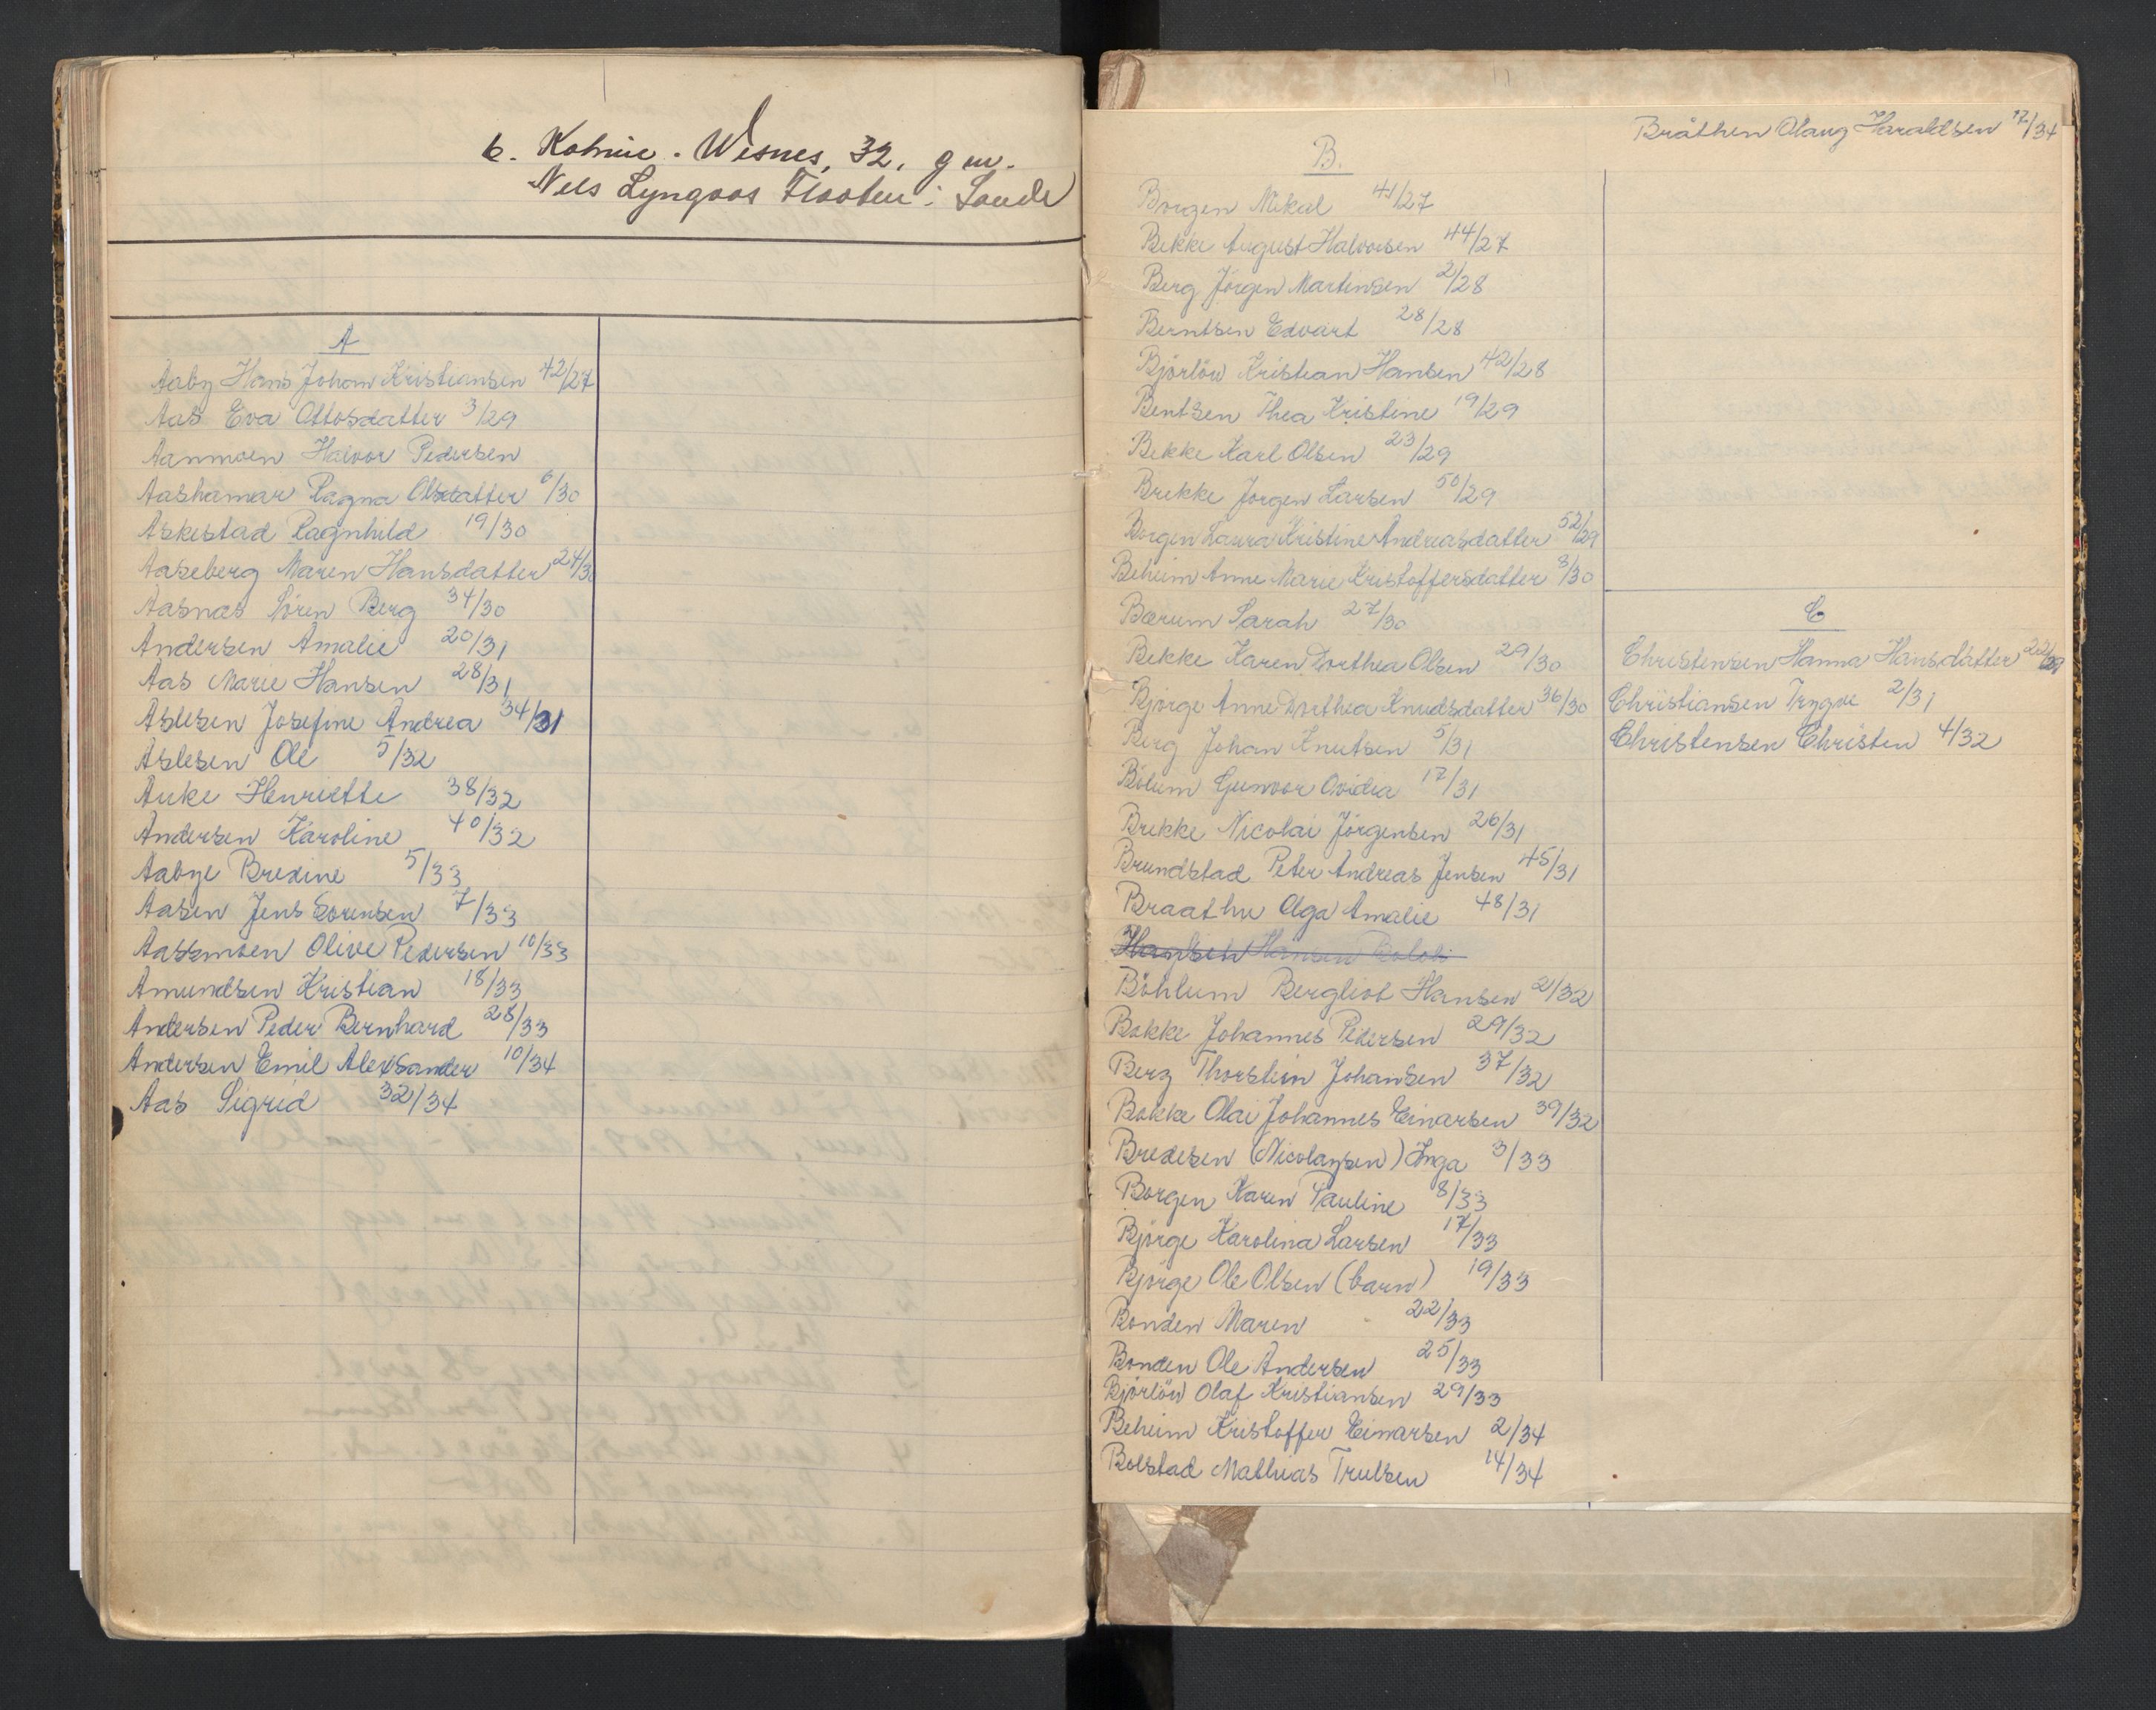 6. Kolnie. Wesnes, 32, g m.
Nels Lyngaas Flaaten i Sande
A
Aaby Hans Johan Kristiansen 42/27
Aas Eva Ottosdatter 3/29
Aanmoen Halvor Pedersen
Aashamar Ragna Olsdatter 6/30
Askestad Ragnhild 19/30
Aaseberg Maren Hansdatter 24/30
Aasnæs Sören Berg 34/30
Andersen Amalie 20/31
Aas Marie Hansen 28/31
Aslesen Josefine Andrea 34/31
Aslesen Ole 5/32
Auke Henriette 38/32
Andersen Karoline 40/32
Aabye Bredine 5/33
Aasen Jens Sorensen 7/33
Aassmoen Olive Pedersen 10/33
Amundsen Kristian 18/33
Andersen Peder Bernhard 28/33
Andersen Emil Alexsander 10/34
Aas Sigrid 32/34
B.
Borgen Mikal 41/27
Bekke August Halvorsen 44/27
Berg Jörgen Martinsen 2/28
Berntsen Edvart 28/28
Björlöw Kristian Hansen 42/28
Bentsen Thea Kristine 19/29
Bekke Karl Olsen 23/29
Brekke Jorgen Larsen 50/29
Borgen Laura Kristine Andreasdatter 52/29
Beheim Anne Marie Kristoffersdatter 3/30
Bærum Sarah 27/30
Bekke Karen Dorthea Olsen 29/30
Bjørge Anne Dorthea Knudsdatter 36/30
Berg Johan Knutsen 5/31
Bölum Gunvor Ovidia 17/31
Brekke Nicolai Jörgensen 26/31
Brundstad Peter Andreas Jensen 45/31
Braathen Olga Amalie 48/31
Hansen
Böhlum Bergliot Hansen 21/32
Bokke Johannes Pedersen 29/32
Berg Thorstein Johansen 37/32
Bokke Olai Johannes Einarsen 39/32
Bredesen (Nicolaysen) Inga 3/33
Borgen Karen Pauline 8/33
Björge Karolina Larsen 17/33
Björge Ole Olsen (barn) 19/33
Bonden Maren 22/33
Bonden Ole Andersen 25/33
Björlöw Olaf Kristiansen 29/33
Beheim Kristoffer Einarsen 2/34
Bolstad Mathias Trulsen 14/34
Bråthen Olaug Haraldsen 17/34
C
Christensen Hanna Hansdatter 22/29
Christiansen Trygve 2/31
Christensen Christen 4/32